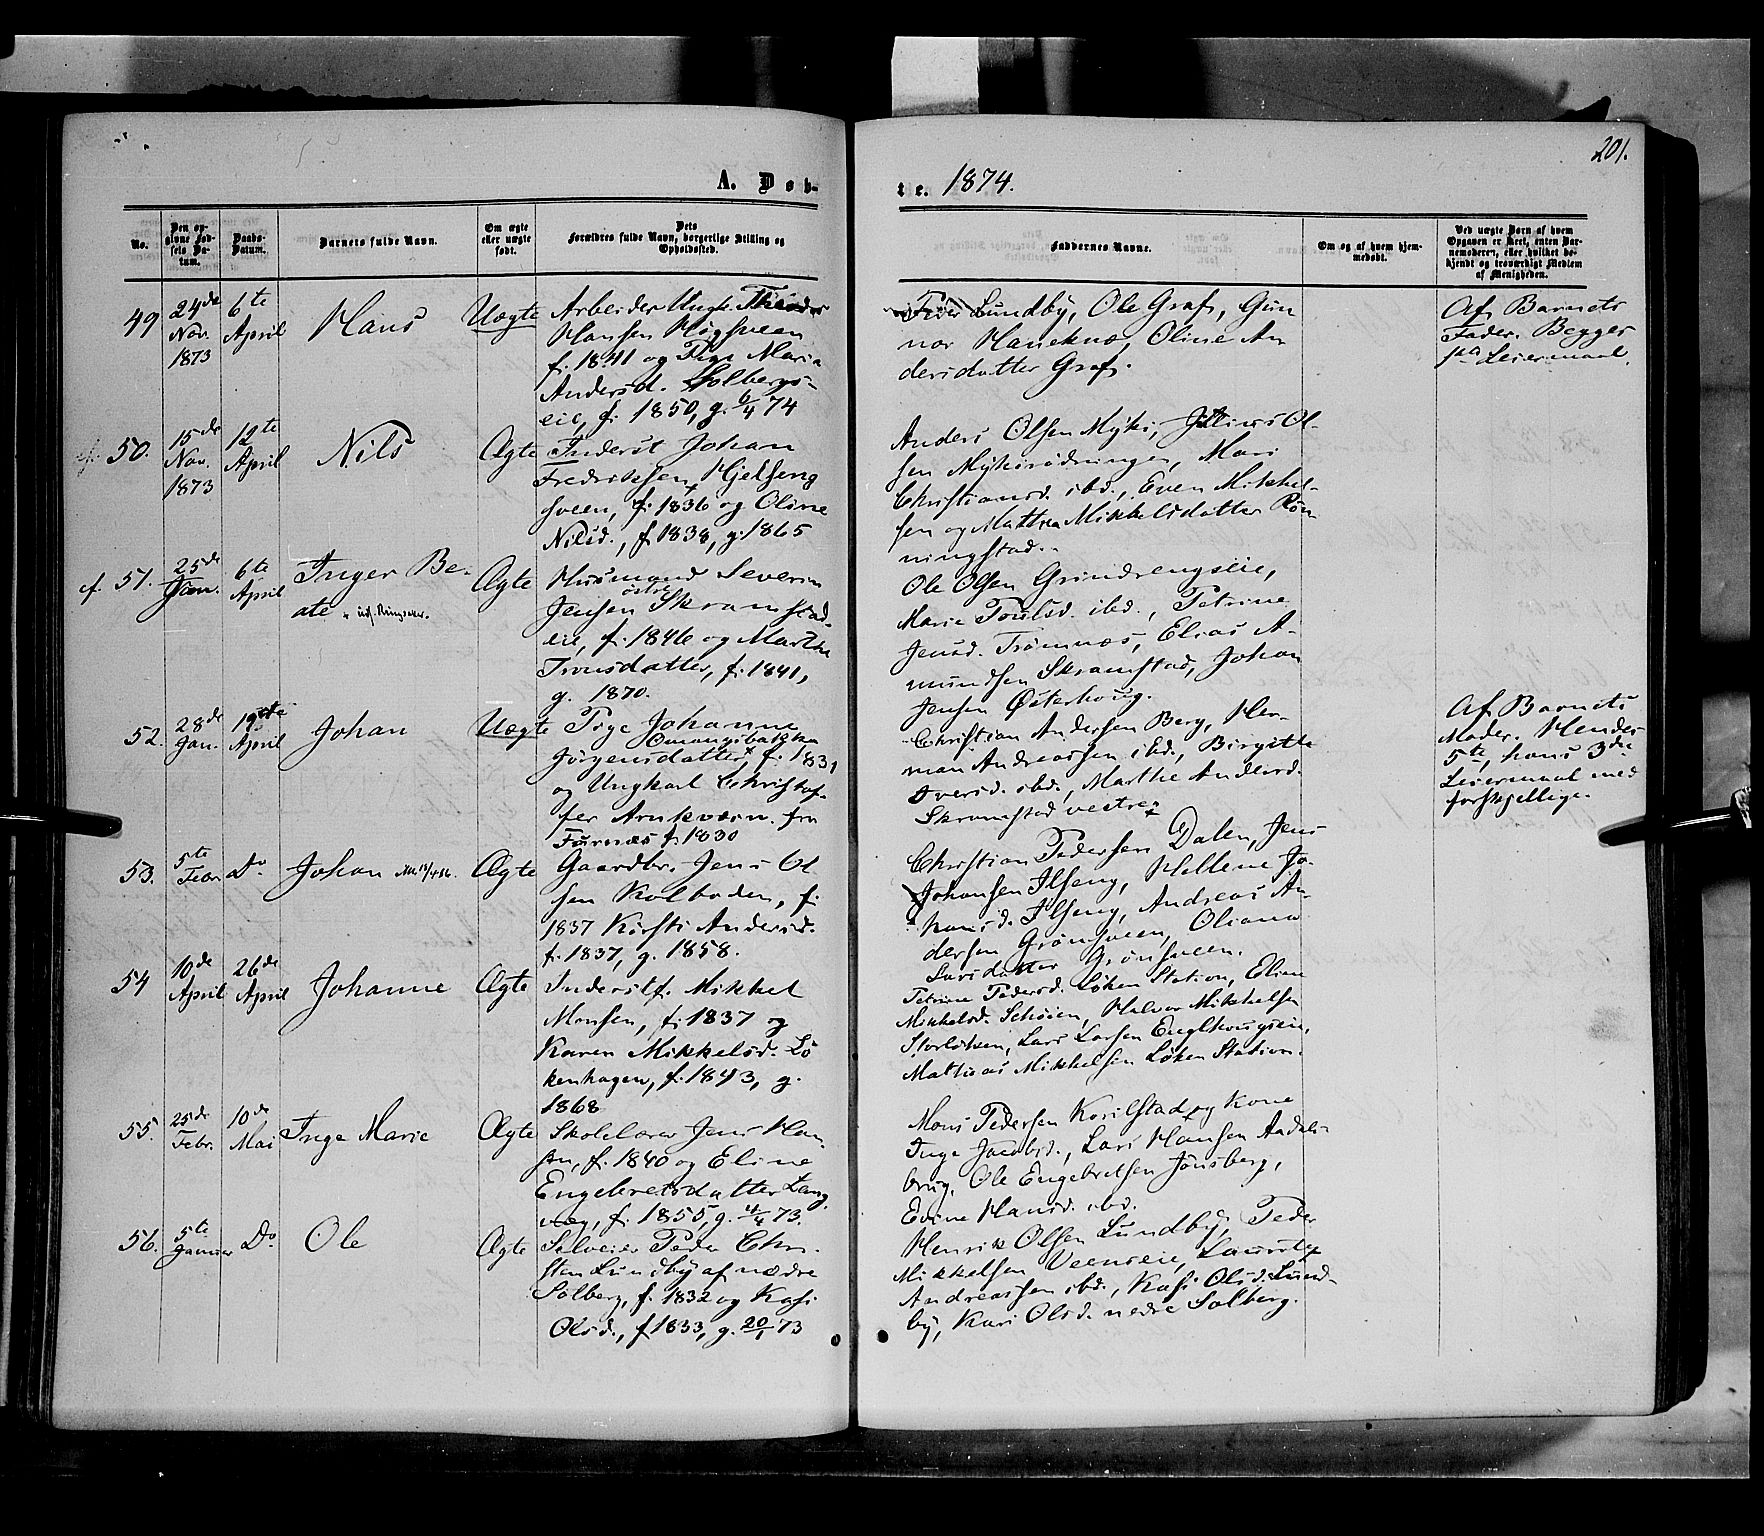 201.
A. Døb-
te. 1874.
No.
Den op-
givne Fød-
sels Da-
tum.
Daabs-
Datum.
Barnets fulde Navn.
Om ægte
eller uægte
født.
Dets
Forældres fulde Navn, borgerlige Stilling og
Opholdssted.
Faddernes Navne.
Om og af hvem hjem-
medøbt.
Ved uægte Børn af hvem
Opgaven er skeet, enten Bar-
nemoderen, eller hvilket be-
kjendt og troværdigt Medlem
af Menigheden.
49
24de
Nov.
1873
6te
April
Hans
Uægte
Arbeider Ungk. Theodor
Hansen Høgsveen
f. 1841 og Pige Maria
Andersd. Solbergs-
eie, f. 1850, g. 6/4 74
Peder Lundby, Ole Graf, Gun
nor Haneknæ, Oline An
dersdatter Graf.
Af Barnets
Fader. Begges
1ste Leiermaal.
50.
15de
Nov.
1873
12te
April
Nils
Ægte
Inderst Johan
Fredriksen Hjelseng
sveen, f. 1836 og Oline
Nilsd., f 1838, g. 1865
Anders Olsen Myhr, Julius Ol-
sen Myhrsrødningen, Mari
Christiansd. ibd., Even Mikkel-
sen og Mathea Mikkelsdatter Røn-
ningstad.
cf. 51.
25de
Jan.
6te
April
Inger Be-
ate
udf. Ringsaker.
Ægte
Husmand Severin
Jensen østre Skramstad-
eie, f. 1846 og Marthe
Tronsdatter, f. 1841,
g. 1870.
Ole Olsen Grindengseie,
Marie Poulsd. ibd., Petrine
Jensd. Trømnæs, Elias A-
mundsen Skramstad, Johan
Jensen Østerhoug.
52.
28de
Jan.
19de
April
Johan
Uægte
Pige Johanne
Omangsbakken
Jørgensdatter, f. 1831
og Ungkarl Christof-
fer Arnkværn fra
Furnæs f. 1830
Christian Andersen Berg, Her-
man Andreassen ibd., Birgitte
Iversd. ibd., Marthe Andersd.
Skramstad vestre
Af Barnets
Moder. Hendes
5te, hans 3die
Leiermaal med
forskjellige.
53.
5te
Febr
Do
Johan
Ægte
Gaardbr. Jens Ol
sen Kolboden, f.
1837 Kirsti Andersd.
f. 1837, g. 1858.
Christian Pedersen Dalen, Jens
Johansen Ilseng, Hellene Jo-
hansd. Ilseng, Andreas An-
dersen Grønsveen, Oliana
Larsdatter Grønsveen.
54
10de
April
26de
April
Johanne
Ægte
Inderstf. Mikkel
Monsen, f. 1837 og
Karen Mikkelsd. Lø
kenhagen, f. 1843, g.
1868
Petrine Pedersd. Løken Station, Eline
Mikkelsd. Schøien, Halvor Mikkelsen
Storløken, Lars Larsen Englhougseie,
Mathias Mikkelsen Løken Station.
55.
25de
Febr.
10de
Mai
Inga Marie
Ægte
Skolelærer Jens Han-
sen, f. 1840 og Eline
Engebretsdatter Lang-
væg, f. 1855, g. 4/4 73.
Mons Pedersen Korilstad og Kone
Inge Jacobsd., Lars Hansen Aadals-
brug, Ole Engebretsen Jønsberg,
Evine Hansd. ibd.
56.
5te
Januar
Do
Ole
Ægte
Selveier Peder Chri-
sten Lundby af nædre
Solberg, f. 1832 og Kasi
Olsd., f 1833, g. 20/1 73
Henrik Olsen Lundby, Peder
Mikkelsen Veenseie, Lauritz
Andreassen ibd., Kasi Olsd. Lund-
by, Kari Olsd. nedre Solberg.